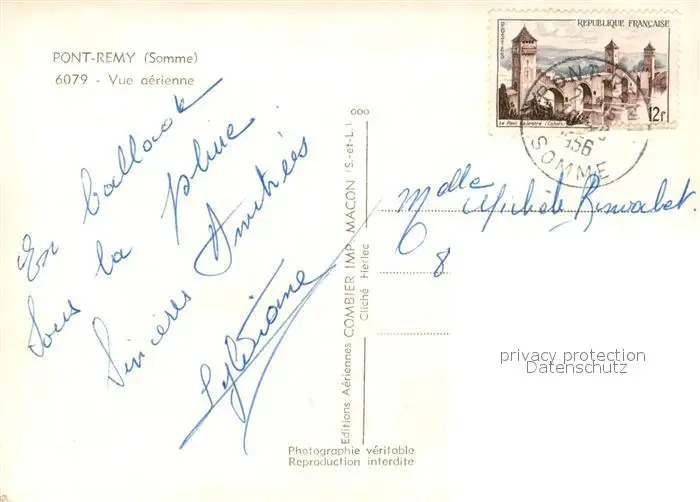 PONT-REMY (Somme)
6079 - Vue aérienne
En ballade
sous la pluie.
Sincères Amitiés
Sylviane
Editions Aériennes COMBIER IMP. MACON (S.-et-L.)
Cliché Herlec
Photographie véritable
Reproduction interdite
REPUBLIQUE FRANÇAISE
POSTES
Le Pont Valentré (Cahors)
12f
PONT
1956
SOMME
Melle Michèle
8
privacy protection
Datenschutz